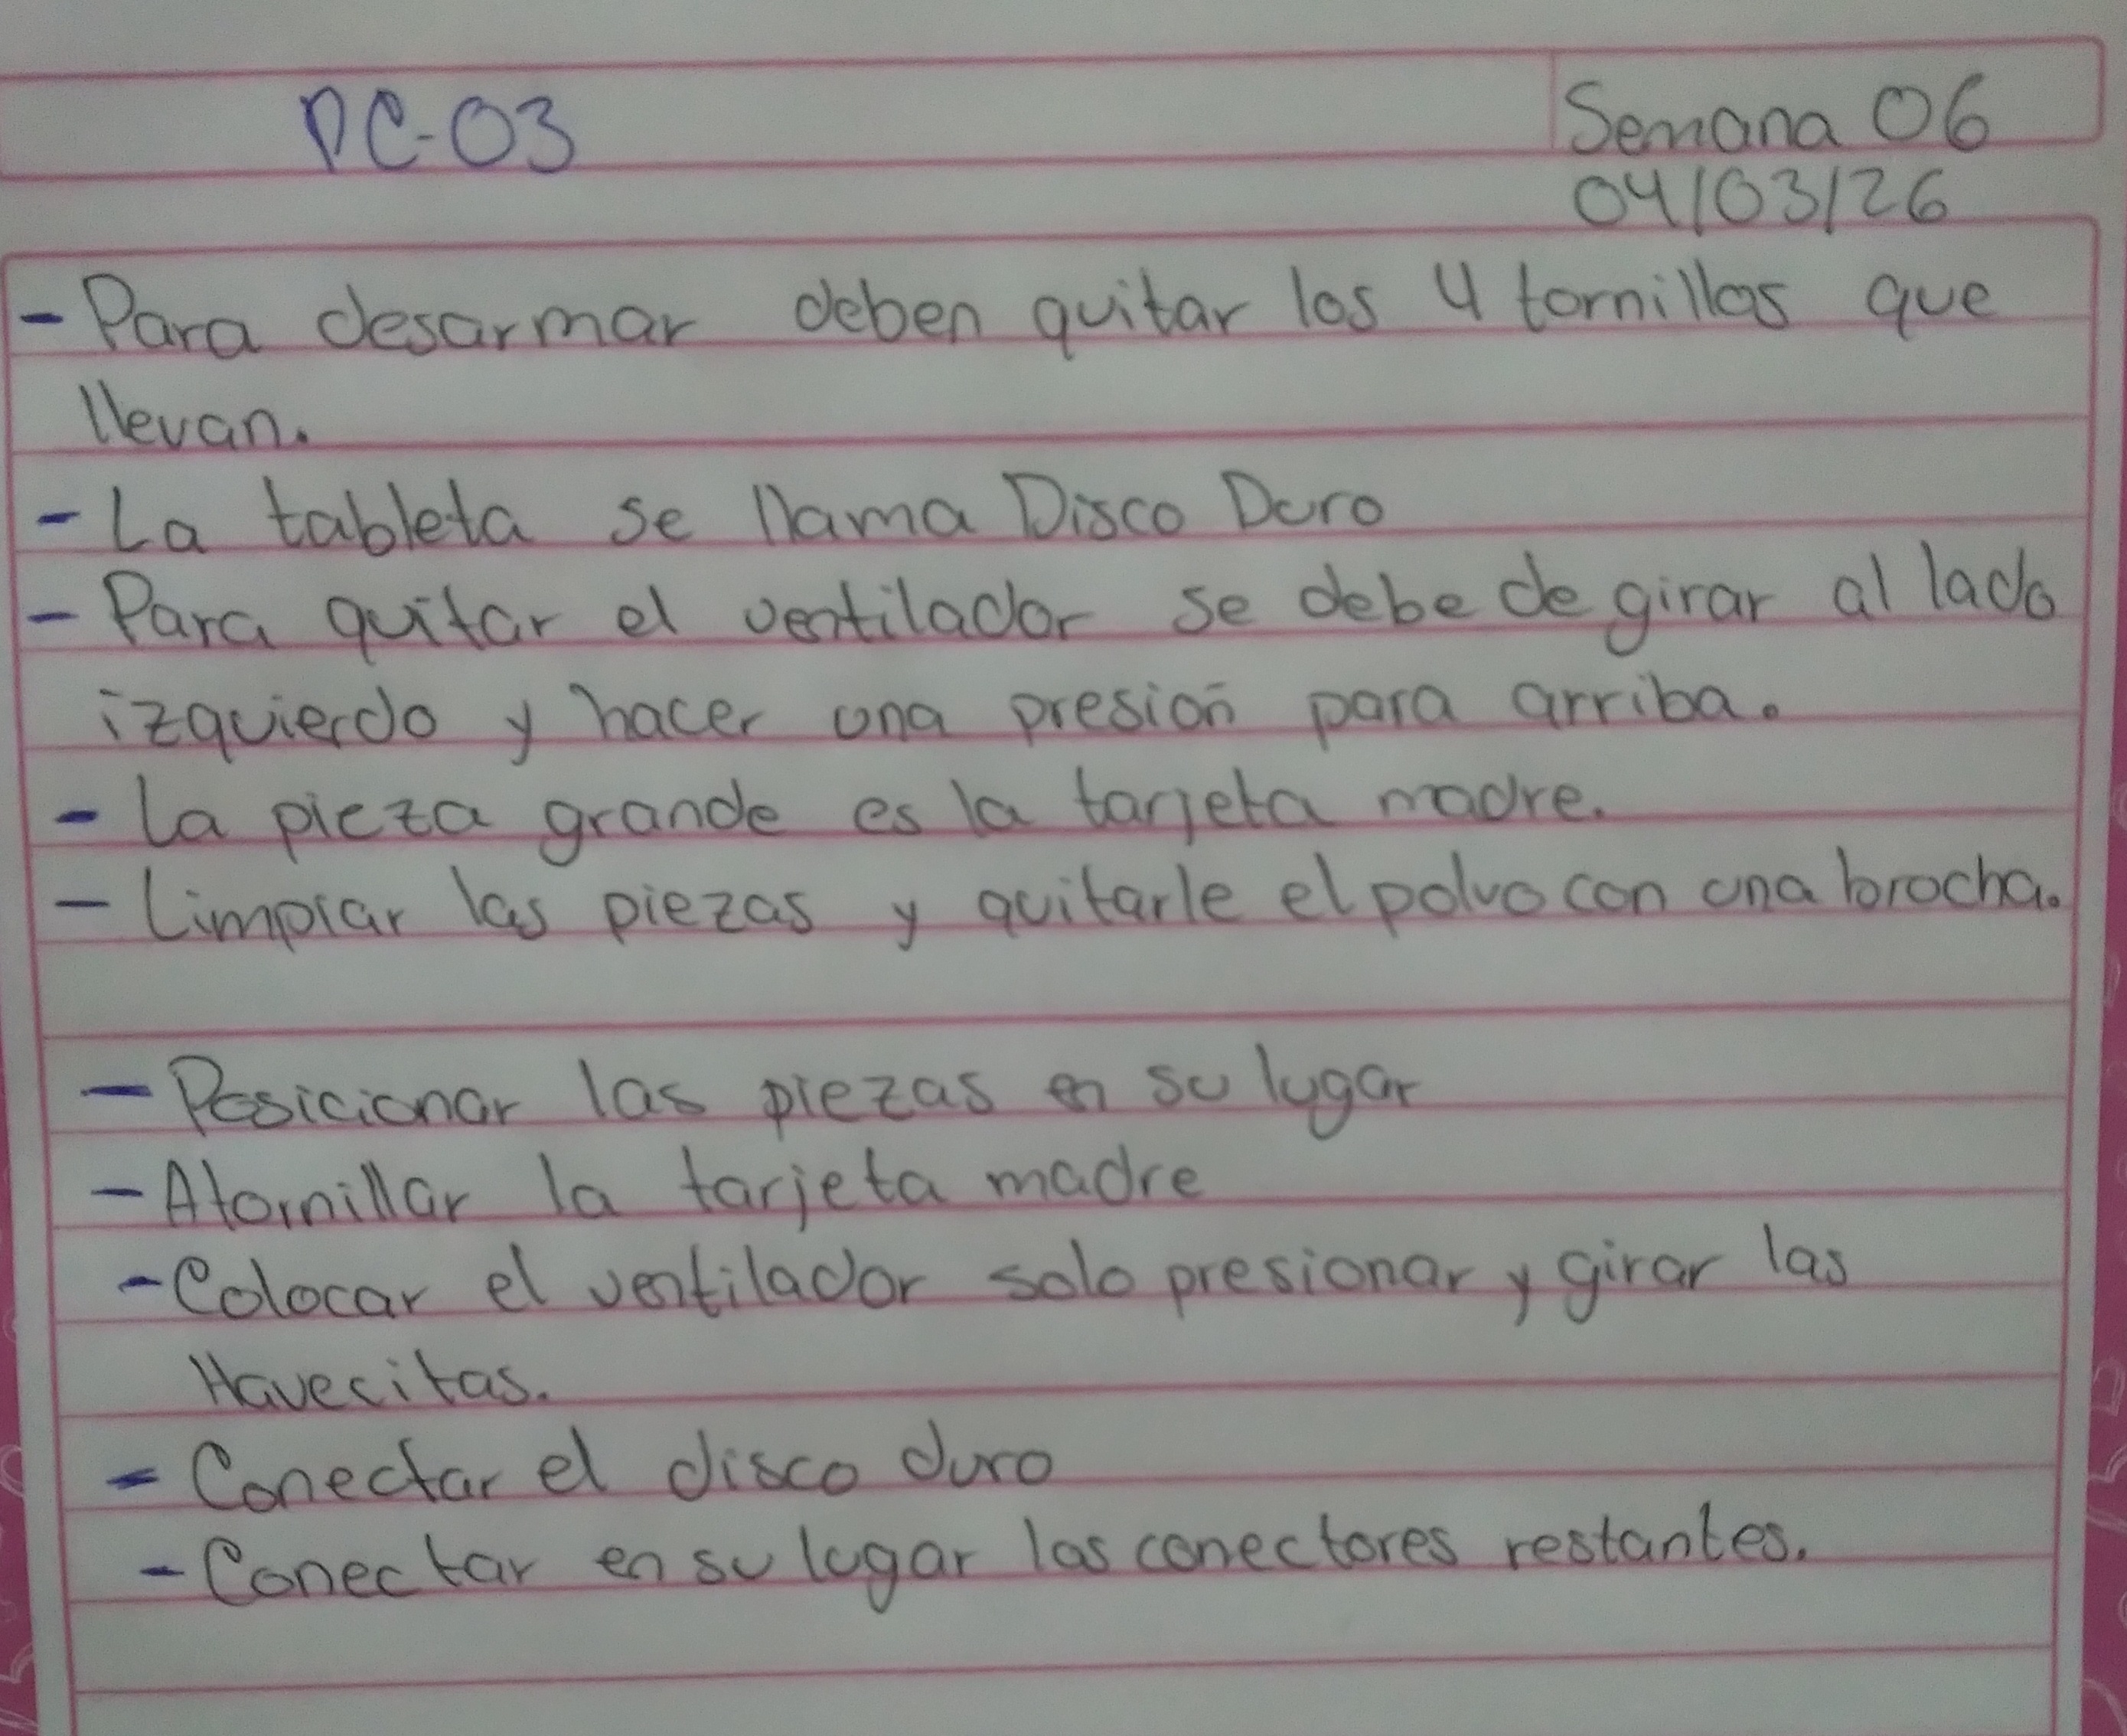 PC-03
Semana 06
04/03/26
- Para desarmar deben quitar los 4 tornillos que
llevan.
- La tableta se llama Disco Duro
- Para quitar el ventilador se debe de girar al lado
izquierdo y hacer una presión para arriba.
- La pieza grande es la tarjeta madre.
- Limpiar las piezas y quitarle el polvo con una brocha.
- Posicionar las piezas en su lugar
- Atornillar la tarjeta madre
- Colocar el ventilador solo presionar y girar las
llavecitas.
- Conectar el disco duro
- Conectar en su lugar los conectores restantes.